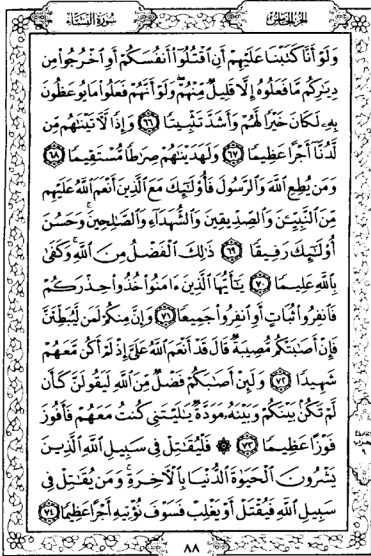 الجزء الخامس
سورة النساء
وَلَوْ أَنَّا كَتَبْنَا عَلَيْهِمْ أَنِ ٱقْتُلُوٓا۟ أَنفُسَكُمْ أَوِ ٱخْرُجُوا۟ مِن
دِيَـٰرِكُم مَّا فَعَلُوهُ إِلَّا قَلِيلٌ مِّنْهُمْ وَلَوْ أَنَّهُمْ فَعَلُوا۟ مَا يُوعَظُونَ
بِهِۦ لَكَانَ خَيْرًا لَّهُمْ وَأَشَدَّ تَثْبِيتًا ٦٦ وَإِذًا لَّـَٔاتَيْنَـٰهُم مِّن
لَّدُنَّآ أَجْرًا عَظِيمًا ٦٧ وَلَهَدَيْنَـٰهُمْ صِرَٰطًا مُّسْتَقِيمًا ٦٨
وَمَن يُطِعِ ٱللَّهَ وَٱلرَّسُولَ فَأُو۟لَـٰٓئِكَ مَعَ ٱلَّذِينَ أَنْعَمَ ٱللَّهُ عَلَيْهِم
مِّنَ ٱلنَّبِيِّـۧنَ وَٱلصِّدِّيقِينَ وَٱلشُّهَدَآءِ وَٱلصَّـٰلِحِينَ ۚ وَحَسُنَ
أُو۟لَـٰٓئِكَ رَفِيقًا ٦٩ ذَٰلِكَ ٱلْفَضْلُ مِنَ ٱللَّهِ ۚ وَكَفَىٰ
بِٱللَّهِ عَلِيمًا ٧٠ يَـٰٓأَيُّهَا ٱلَّذِينَ ءَامَنُوا۟ خُذُوا۟ حِذْرَكُمْ
فَٱنفِرُوا۟ ثُبَاتٍ أَوِ ٱنفِرُوا۟ جَمِيعًا ٧١ وَإِنَّ مِنكُمْ لَمَن لَّيُبَطِّئَنَّ
فَإِنْ أَصَـٰبَتْكُم مُّصِيبَةٌ قَالَ قَدْ أَنْعَمَ ٱللَّهُ عَلَىَّ إِذْ لَمْ أَكُن مَّعَهُمْ
شَهِيدًا ٧٢ وَلَئِنْ أَصَـٰبَكُمْ فَضْلٌ مِّنَ ٱللَّهِ لَيَقُولَنَّ كَأَن
لَّمْ تَكُنۢ بَيْنَكُمْ وَبَيْنَهُۥ مَوَدَّةٌ يَـٰلَيْتَنِى كُنتُ مَعَهُمْ فَأَفُوزَ
فَوْزًا عَظِيمًا ٧٣ ۞ فَلْيُقَـٰتِلْ فِى سَبِيلِ ٱللَّهِ ٱلَّذِينَ
يَشْرُونَ ٱلْحَيَوٰةَ ٱلدُّنْيَا بِٱلْـَٔاخِرَةِ ۚ وَمَن يُقَـٰتِلْ فِى
سَبِيلِ ٱللَّهِ فَيُقْتَلْ أَوْ يَغْلِبْ فَسَوْفَ نُؤْتِيهِ أَجْرًا عَظِيمًا ٧٤
٨٨